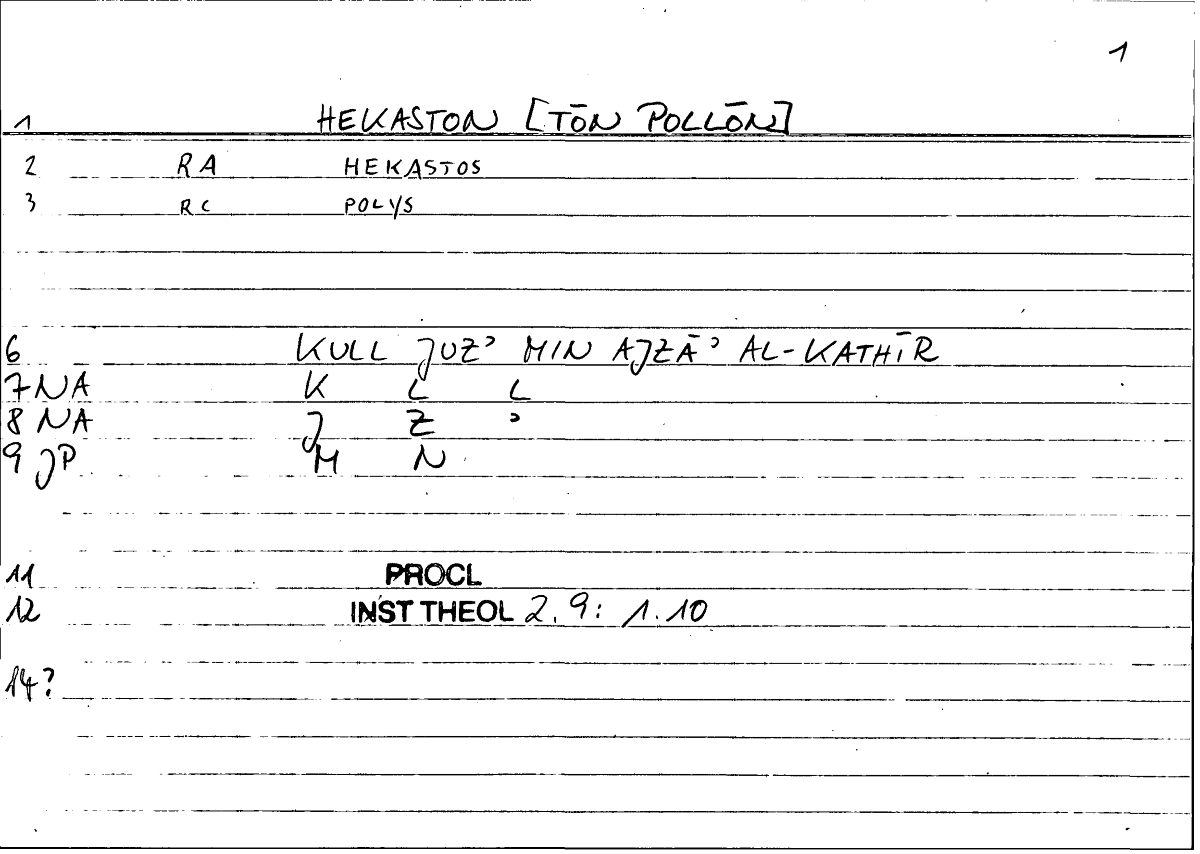 1
1 HEKASTON [TŌN POLLŌN]
2 RA HEKASTOS
3 RC POLYS
6 KULL JUZʾ MIN AJZĀʾ AL-KATHĪR
7 NA K L L
8 NA J Z ʾ
9 JP M N
11 PROCL
12 INST THEOL 2.9: 1.10
14?